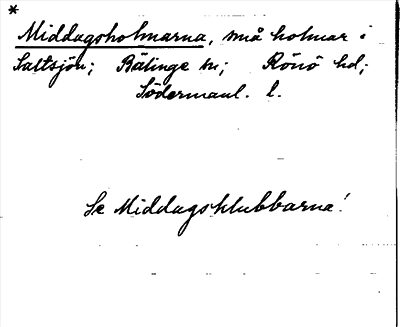 *
Middagsholmarna, små holmar i
Saltsjön; Bälinge sn; Rönö hd;
Södermanl. l.
Se Middagsklubbarna!